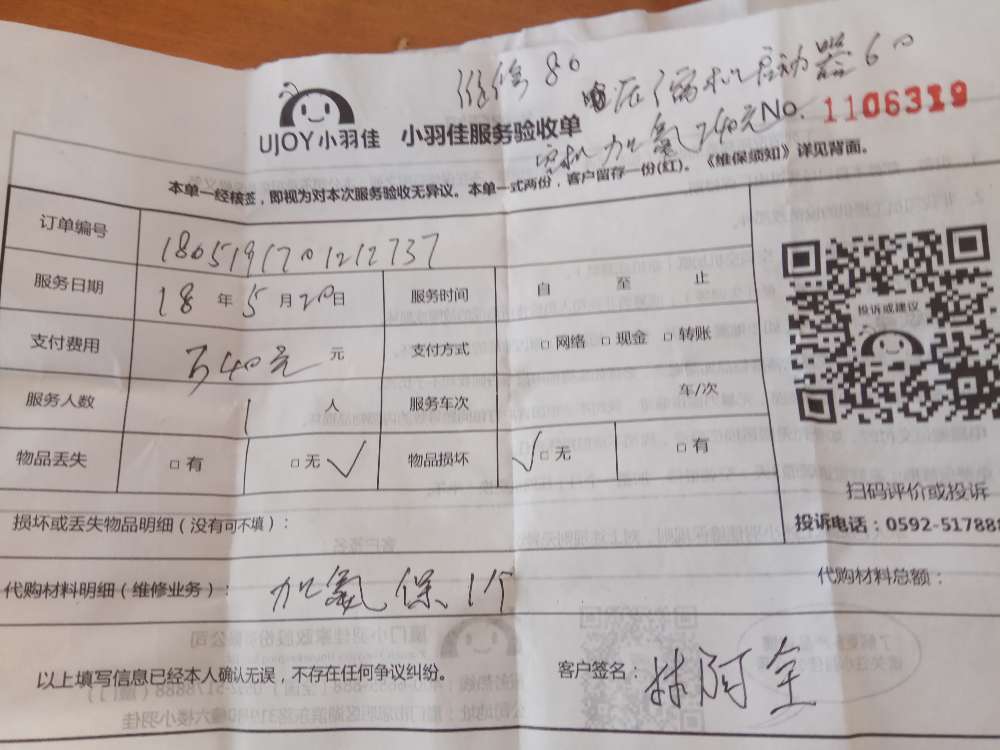 维修 80 电压缩机启动器60
空机加氟240元
UJOY小羽佳 小羽佳服务验收单 No. 1106319
本单一经核签，即视为对本次服务验收无异议。本单一式两份，客户留存一份(红)。《维保须知》详见背面。
订单编号 1805191701212737
服务日期 18 年 5 月 20 日 服务时间 自 至 止
支付费用 340元 元 支付方式 □ 网络 □ 现金 □ 转账
服务人数 1 人 服务车次 车/次
物品丢失 □ 有 □ 无 √ 物品损坏 √ □ 无 □ 有
投诉或建议
扫码评价或投诉
损坏或丢失物品明细（没有可不填）：
投诉电话：0592-517888
代购材料明细（维修业务）： 加氟 保1个 代购材料总额：
以上填写信息已经本人确认无误，不存在任何争议纠纷。 客户签名： 林阿全